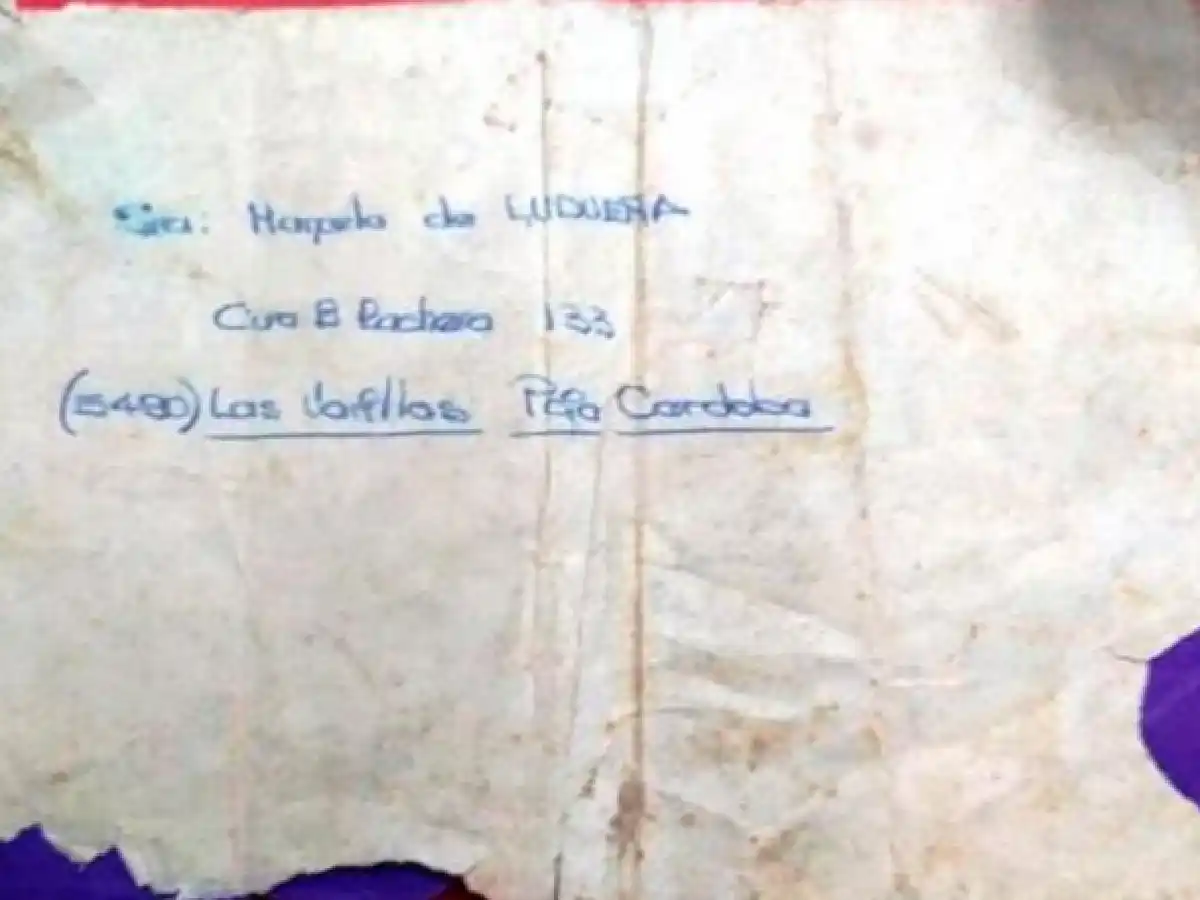 Sra: Marcela de LUDUEÑA
Cura B Pacheco 133
Las Varillas Pcia Cordoba